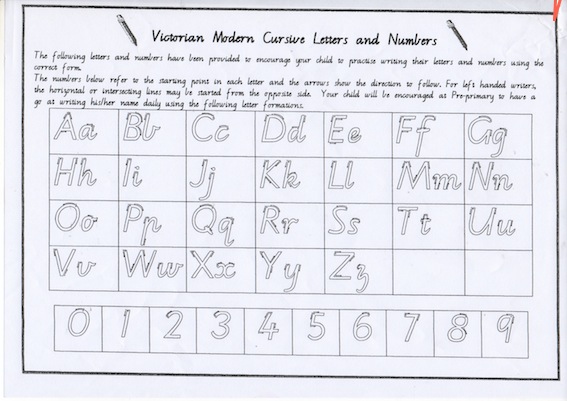 Victorian Modern Cursive Letters and Numbers
The following letters and numbers have been provided to encourage your child to practise writing their letters and numbers using the
correct form.
The numbers below refer to the starting point in each letter and the arrows show the direction to follow. For left handed writers,
the horizontal or intersecting lines may be started from the opposite side. Your child will be encouraged at Pre-primary to have a
go at writing his/her name daily using the following letter formations.
Aa Bb Cc Dd Ee Ff Gg
Hh Ii Jj Kk Ll Mm Nn
Oo Pp Qq Rr Ss Tt Uu
Vv Ww Xx Yy Zz
0 1 2 3 4 5 6 7 8 9